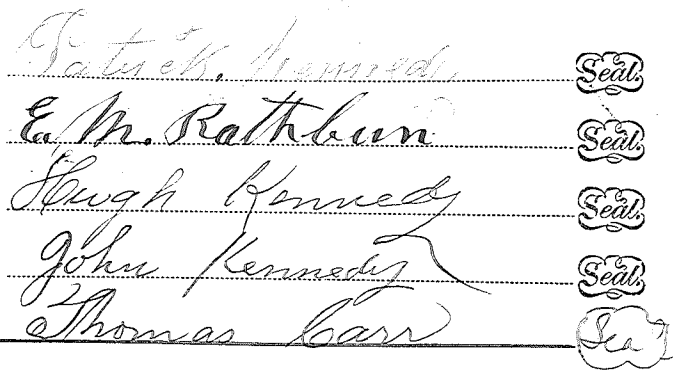 Patrick. Kennedy Seal.
E. M. Rathbun Seal.
Hugh Kennedy Seal.
John Kennedy Seal.
Thomas Carr Seal